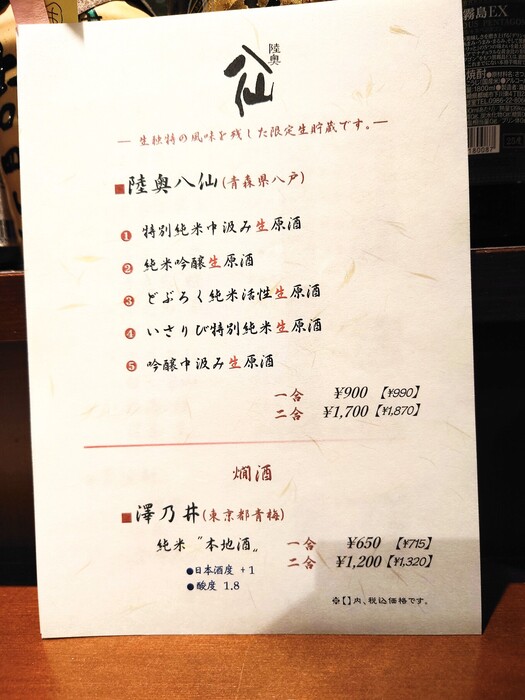 陸奥
八仙
— 生独特の風味を残した限定生貯蔵です。—
■陸奥八仙(青森県八戸)
❶ 特別純米中汲み生原酒
❷ 純米吟醸生原酒
❸ どぶろく純米活性生原酒
❹ いさりび特別純米生原酒
❺ 吟醸中汲み生原酒
一合 ¥900【¥990】
二合 ¥1,700【¥1,870】
燗酒
■澤乃井(東京都青梅)
純米〝本地酒〟 一合 ¥650【¥715】
二合 ¥1,200【¥1,320】
●日本酒度 +1
●酸度 1.8
※【】内、税込価格です。
霧島EX